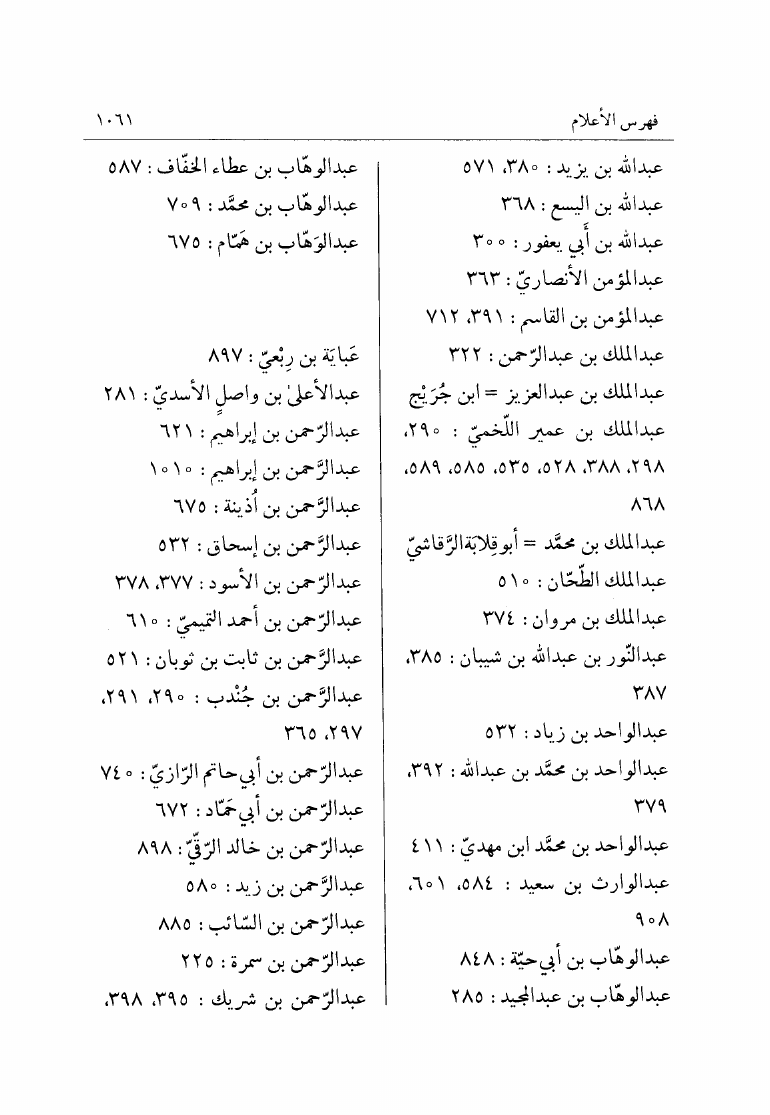 فهرس الأعلام
١٠٦١
عبدالله بن يزيد : ٣٨٠، ٥٧١
عبدالله بن اليسع : ٣٦٨
عبدالله بن أَبي يعفور : ٣٠٠
عبدالمؤمن الأنصاريّ : ٣٦٣
عبدالمؤمن بن القاسم : ٣٩١، ٧١٢
عبدالملك بن عبدالرّحمن : ٣٢٢
عبدالملك بن عبدالعزيز = ابن جُرَيْج
عبدالملك بن عمير اللّخميّ : ٢٩٠،
٢٩٨، ٣٨٨، ٥٢٨، ٥٣٥، ٥٨٥، ٥٨٩،
٨٦٨
عبدالملك بن محمَّد = أبوقِلابَةالرَّقاشيّ
عبدالملك الطّحّان : ٥١٠
عبدالملك بن مروان : ٣٧٤
عبدالنّور بن عبدالله بن شيبان : ٣٨٥،
٣٨٧
عبدالواحد بن زياد : ٥٣٢
عبدالواحد بن محمَّد بن عبدالله : ٣٩٢،
٣٧٩
عبدالواحد بن محمَّد ابن مهديّ : ٤١١
عبدالوارث بن سعيد : ٥٨٤، ٦٠١،
٩٠٨
عبدالوهّاب بن أبي‌حيّة : ٨٤٨
عبدالوهّاب بن عبدالمجيد : ٢٨٥
عبدالوهّاب بن عطاء الخفّاف : ٥٨٧
عبدالوهّاب بن محمَّد : ٧٠٩
عبدالوَهّاب بن هَمّام : ٦٧٥
عَبايَة بن رِبْعيّ : ٨٩٧
عبدالأعلىٰ بن واصلٍ الأسديّ : ٢٨١
عبدالرّحمن بن إبراهيم : ٦٢١
عبدالرَّحمن بن إبراهيم : ١٠١٠
عبدالرَّحمن بن أُذينة : ٦٧٥
عبدالرَّحمن بن إسحاق : ٥٣٢
عبدالرّحمن بن الأسود : ٣٧٧، ٣٧٨
عبدالرّحمن بن أحمد التميميّ : ٦١٠
عبدالرَّحمن بن ثابت بن ثوبان : ٥٢١
عبدالرَّحمن بن جُنْدب : ٢٩٠، ٢٩١،
٢٩٧، ٣٦٥
عبدالرّحمن بن أبي‌حاتم الرّازيّ : ٧٤٠
عبدالرّحمن بن أبي‌حَمّاد : ٦٧٢
عبدالرّحمن بن خالد الرّقّيّ : ٨٩٨
عبدالرَّحمن بن زيد : ٥٨٠
عبدالرّحمن بن السّائب : ٨٨٥
عبدالرّحمن بن سمرة : ٢٢٥
عبدالرّحمن بن شريك : ٣٩٥، ٣٩٨،